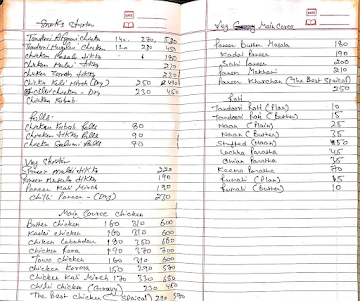 DATE
Tandoori Afgani chicken 140 270 520
Tandoori Mughlai chicken 120 280 450
chicken masala tikka 180
chicken malai tikka 210
chicken tikka 220
chicken 250
chicken - (Dry) 230 450
chicken Kabab
Rolls:
chicken Kabab Rolls 80
chicken tikka Rolls 90
chicken Rolls 70
Veg Starter
Paneer malai tikka 220
Paneer masala tikka 190
Paneer Kali Mirch 190
Chilli Paneer - (Dry) 230
Main Cource Chicken
Butter chicken 160 310 600
Kadai chicken 160 310 600
chicken 350 680
chicken Rara 190 370 700
Tawa chicken 160 310 600
chicken Korma 150 290 570
chicken Kali Mirch 170 330 650
Chilli chicken (Gravy) 220
The Best chicken (Spaical) 290 570
DATE
Veg Main Cource
Paneer Butter Masala 180
Kadai Paneer 190
Paneer 200
Paneer Makhani 210
Paneer Khurchan (The Best Spaical)
250
Roti
Tandoori Roti (Plan) 10
Tandoori Roti (Butter) 15
Naan (Plain) 25
Naan (Butter) 35
Stuffed (Naan)
Lachha Paratha 45
Paratha 35
Keema Paratha 70
Rumali (Plan)
Rumali (Butter) 10